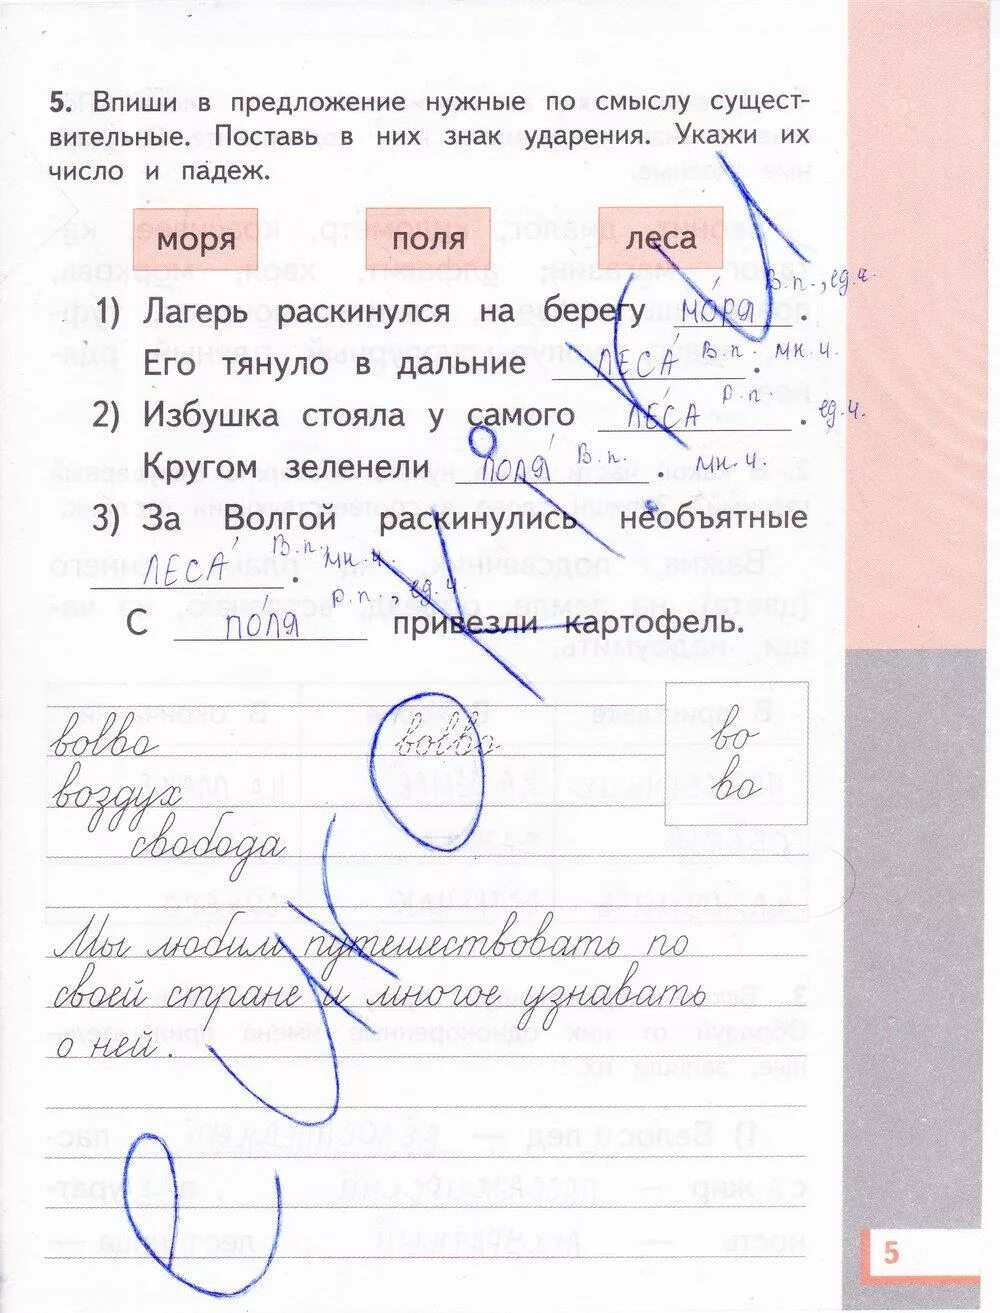 5. Впиши в предложение нужные по смыслу сущест-
вительные. Поставь в них знак ударения. Укажи их
число и падеж.
моря поля леса
В.п., ед.ч.
1) Лагерь раскинулся на берегу мо́ря.
Его тянуло в дальние ЛЕСА́. В.п. мн.ч.
2) Избушка стояла у самого ЛЕ́СА. р.п. ед.ч.
Кругом зеленели ПОЛЯ́. В.п. мн.ч.
3) За Волгой раскинулись необъятные
ЛЕСА́. В.п. мн.ч.
С ПО́ЛЯ привезли картофель. р.п., ед.ч.
воздух
свобода
во
Мы любили путешествовать по
своей стране и многое узнавать
о ней.
5